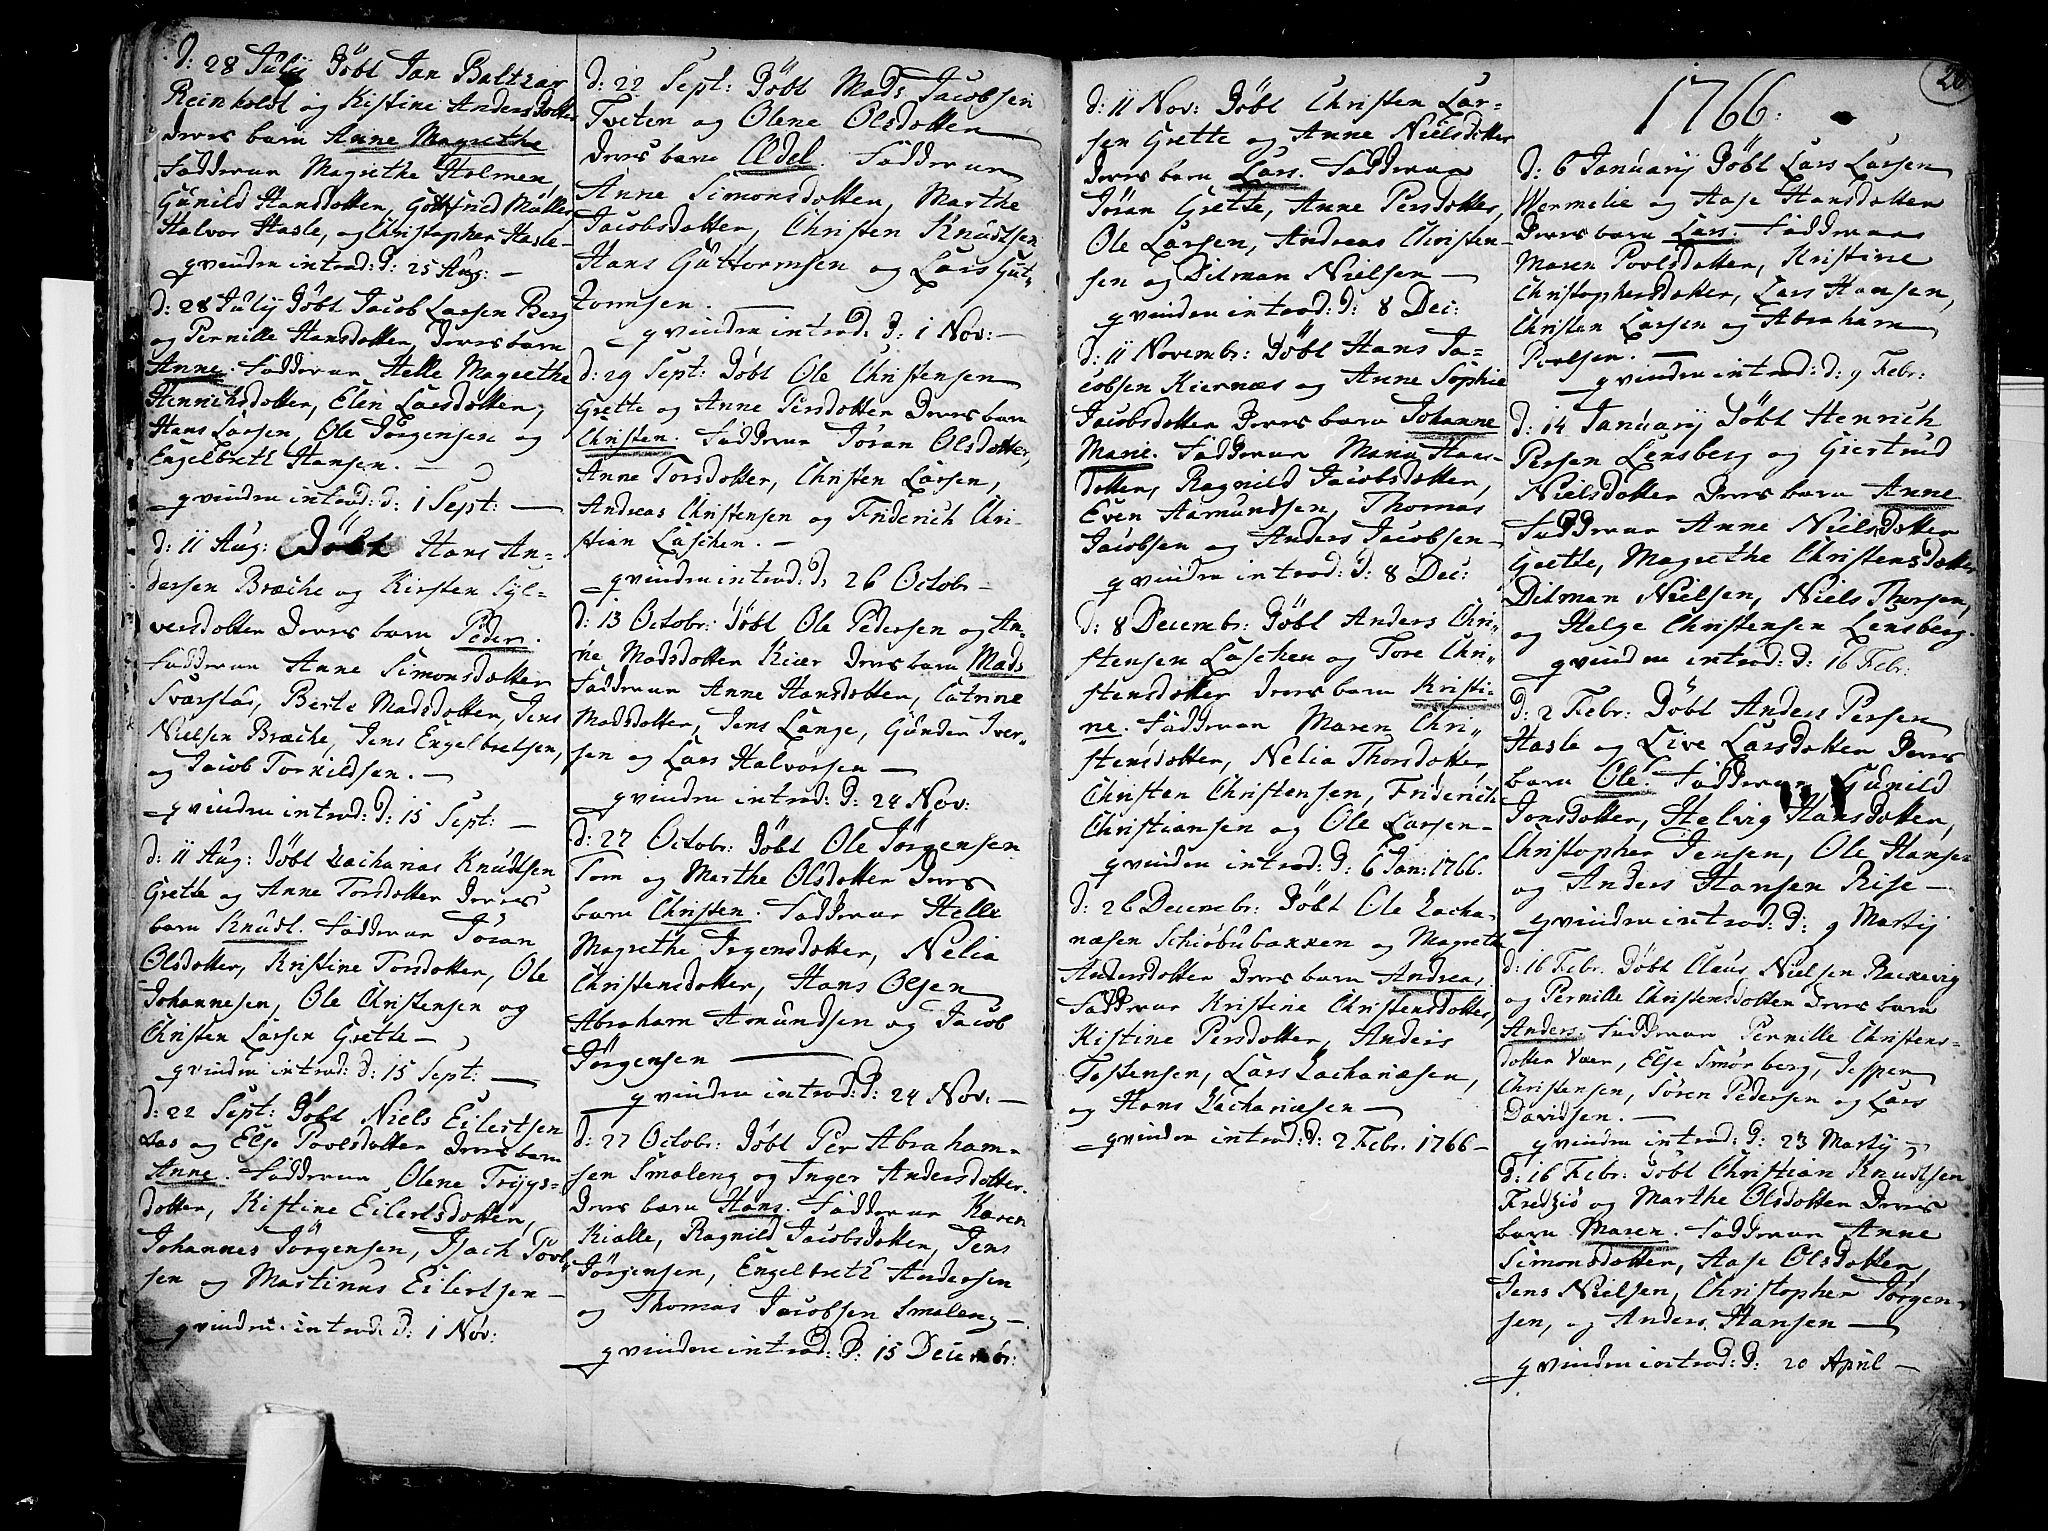 d: 28 Julij Döbt Jan Baltzar
Reinholdt og Kistine Andersdotter
deres barn Anne Magrethe
Fadderne Magrethe Holmen,
Gunild Hansdotter, Gottfried Müller
Halvor Hasle, og Christopher Hasle-
qvinden introd: d: 25 Aug: -
d: 28 Julij Döbt Jacob Larsen Berg
og Pernille Hansdotter, deres barn
Anne. Fadderne Helle Magrethe
Henrichsdotter, Elen Larsdotter,
Hans Larsen, Ole Jörgensen og
Engelbreth Hansen. -
qvinden introd: d: 1 Sept: -
d: 11 Aug: Döbt Hans An-
dersen Bræche og Kirsten Syl-
versdotter deres barn Peder.
Fadderne Anne Simonsdotter
Svarstad, Berte Madsdotter, Jens
Nielsen Bræche, Jens Engelbretsen,
og Jacob Torkildsen. -
qvinden introd: d: 15 Sept: -
d: 11 Aug: Döbt Zacharias Knudtsen
Grette og Anne Torsdotter deres
barn Knudt. Fadderne Jöran
Olsdotter, Kristine Torsdotter, Ole
Johannesen, Ole Christensen og
Christen Larsen Grette -
qvinden introd: d: 15 Sept: -
d: 22 Sept: Döbt Niels Eilertsen
Aas og Else Povlsdotter deres barn
Anne. Fadderne Olene Trygs-
dotter, Kistine Eilertsdotter,
Johannes Jörgensen, Isach Povl-
sen og Martinus Eilertsen -
qvinden introd: d: 1 Nov:
d: 22 Sept: Döbt Mads Jacobsen
Tveten og Olene Olsdotter
deres barn Edel. Fadderne
Anne Simonsdotter, Marthe
Jacobsdotter, Christen Knudtsen
Hans Guttormsen og Lars Gut-
tormsen. -
qvinden introd: d: 1 Nov: -
d: 29 Sept: Döbt Ole Christensen
Grette og Anne Persdotter deres barn
Christen. Fadderne Jöran Olsdotter,
Anne Torsdotter, Christen Larsen,
Andreas Christensen og Friderich Chri-
stian Laschen. -
qvinden introd: d: 26 Octobr -
d: 13 Octobr: Döbt Ole Pedersen og An-
ne Madsdotter Kier deres barn Mads
Fadderne Anne Hansdotter, Catrine
Madsdotter, Jens Lange, Gunder Iver-
sen og Lars Halvorsen -
qvinden introd: d: 24 Nov:
d: 27 Octobr: Döbt Ole Jörgensen
Torn og Marthe Olsdotter deres
barn Christen. Fadderne Helle
Magrethe Jrgensdotter, Nelia
Christensdotter, Hans Olsen
Abraham Amundsen og Jacob
Jörgensen -
qvinden introd: d: 24 Nov: -
d: 27 Octobr: Döbt Per Abraham-
sen Smaleng og Inger Andersdotter.
deres barn Hans. Fadderne Karen
Kialle, Ragnild Jacobsdotter, Jens
Jörgensen, Engelbreth Andersen
og Thomas Jacobsen Smaleng -
qvinden introd: d: 15 Decembr:
d: 11 Nov: Döbt Christen Lar-
sen Grette og Anne Nielsdotter
deres barn Lars. Fadderne
Jöran Grette, Anne Persdotter,
Ole Larsen, Andreas Christen-
sen og Ditman Nielsen -
qvinden introd: d: 8 Dec:
d: 11 Novembr: Döbt Hans Ja-
cobsen Kiernæs og Anne Sophie
Jacobsdotter deres barn Johanne
Marie. Fadderne Marie Hans-
dotter, Ragnild Jacobsdotter,
Even Aamundsen, Thomas
Jacobsen og Anders Jacobsen -
qvinden introd: d: 8 Dec:
d: 8 Decembr: Döbt Anders Chri-
stensen Laschen og Tore Chri-
stensdotter deres barn Kristi-
ne. Fadderne Maren Chri-
stensdotter, Nelia Thorsdotter
Christen Christensen, Friderich
Christiansen og Ole Larsen -
qvinden introd: d: 6 Jan: 1766.
d: 26 Decembr: Döbt Ole Zacha-
riæsen Schiöbubakken og Magrete
Andersdotter deres barn Andreas.
Fadderne Kristine Christensdotter,
Kistine Persdotter, Anders
Tostensen, Lars Zachariæsen,
og Hans Zachariæsen -
qvinden introd: d: 2 Febr. 1766 -
20
1766.
d: 6 Januarij Döbt Lars Larsen
Wermelie og Aase Hansdotter
deres barn Lars. Fadderne
Maren Povlsdotter, Kristine
Christophersdotter, Lars Hansen,
Christen Larsen og Abraham
Povlsen. -
qvinden introd: d: 9 Febr:
d: 14 Januarij Döbt Henrich
Persen Lensberg og Giertrud
Nielsdotter deres barn Anne
Fadderne Anne Nielsdotter
Grette, Magrethe Christensdotter
Ditman Nielsen, Niels Thorsen,
og Helge Christensen Lensberg.
qvinden introd: d: 16 Febr:
d: 2 Febr: Döbt Anders Persen
Hasle og Live Larsdotter deres
barn Ole. Fadderne Gunild
Jonsdotter, Helvig Hansdotter,
Christopher Jensen, Ole Hansen
og Anders Hansen Rise -
qvinden introd: d: 9 Martij
d: 16 Febr. Döbt Claus Nielsen Backevig
og Pernille Christensdotter deres barn
Anders. Fadderne Pernille Christens-
dotter Vær, Else Smörberg, Jesper
Christensen, Sören Pedersen og Lars
Davidsen. -
qvinden introd: d: 23 Martij
d: 16 Febr: Döbt Christian Knudtsen
Fredziö og Marthe Olsdotter deres
barn Maren. Fadderne Anne
Simonsdotter, Aase Olsdotter,
Jens Nielsen, Christopher Jörgen-
sen, og Anders Hansen -
qvinden introd: d: 20 April -